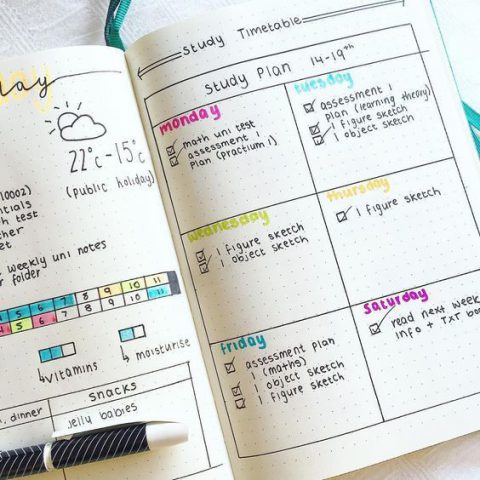 day
22°c - 15°c
(public holiday)
10002)
entials
test
weekly uni notes
folder
5 6 7 8 9 10 11
4 5 6 7 8 9 10 11
vitamins
moisturise
snacks
dinner
jelly babies
study Timetable
study Plan 14-19th
monday
math uni test
assessment 1
plan (practium 1)
tuesday
assessment 1
plan (learning theory)
1 figure sketch
1 object sketch
wednesday
1 figure sketch
1 object sketch
thursday
1 figure sketch
friday
assessment plan
1 (maths)
1 object sketch
1 figure sketch
saturday
read next week
info + TXT boo